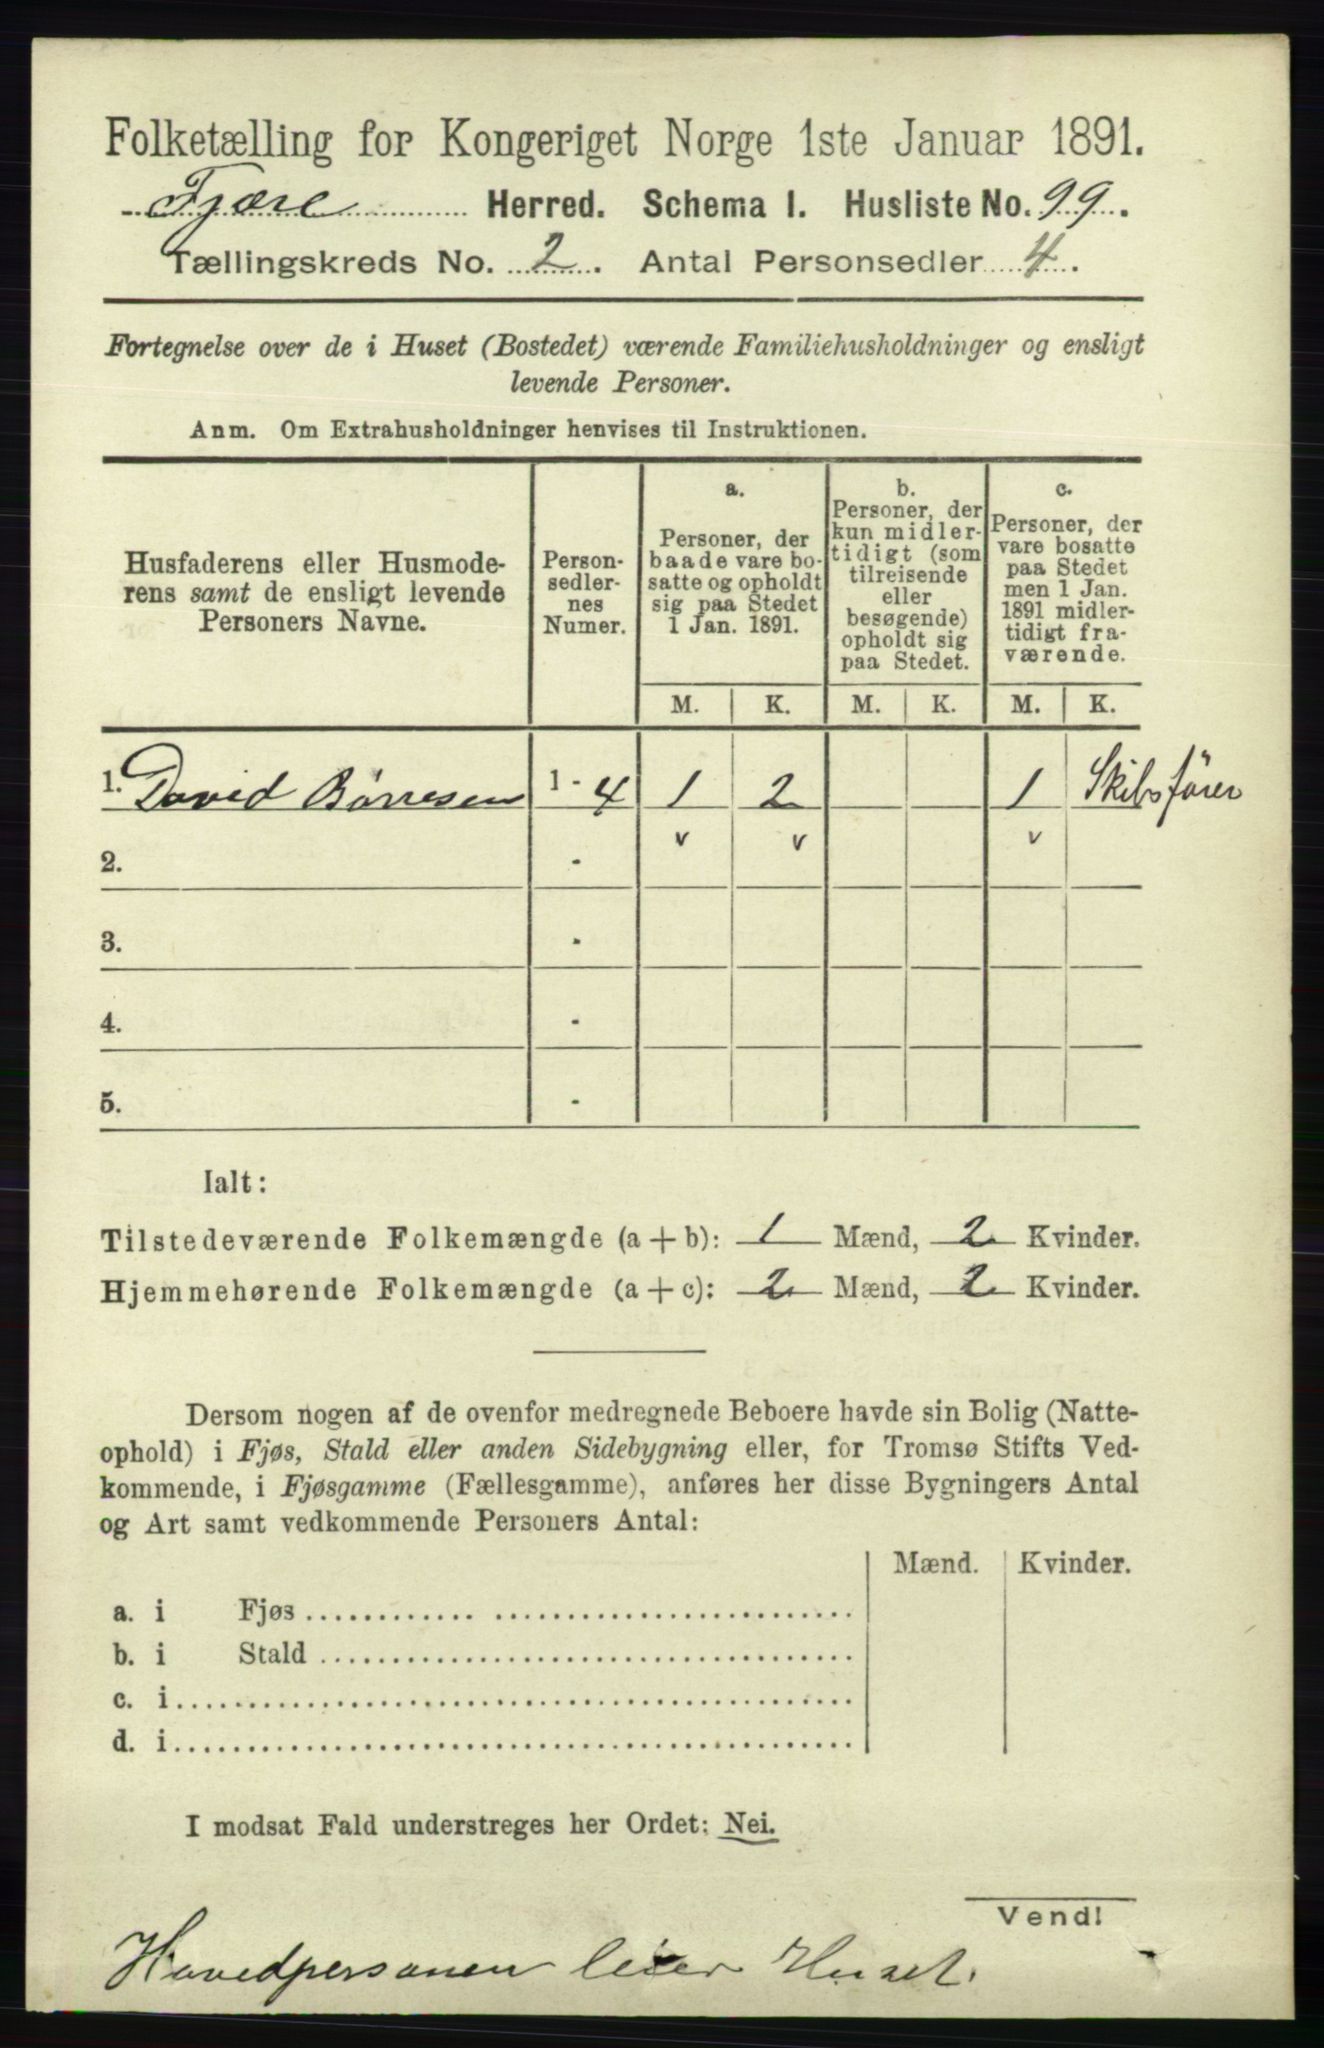 Folketælling for Kongeriget Norge 1ste Januar 1891.
Fjære Herred. Schema I. Husliste No. 99.
Tællingskreds No. 2. Antal Personsedler 4.
Fortegnelse over de i Huset (Bostedet) værende Familiehusholdninger og ensligt
levende Personer.
Anm. Om Extrahusholdninger henvises til Instruktionen.
Husfaderens eller Husmode-
rens samt de ensligt levende
Personers Navne.
Person-
sedler-
nes
Numer.
a.
Personer, der
baade vare bo-
satte og opholdt
sig paa Stedet
1 Jan. 1891.
b.
Personer, der
kun midler-
tidigt (som
tilreisende
eller
besøgende)
opholdt sig
paa Stedet.
c.
Personer, der
vare bosatte
paa Stedet
men 1 Jan.
1891 midler-
tidigt fra-
værende.
M. K. M. K. M. K.
1. David Børresen 1 - 4 1 2 1 Skibsfører
v v v
2. -
3. -
4. -
5. -
Ialt:
Tilstedeværende Folkemængde (a + b): 1 Mænd, 2 Kvinder.
Hjemmehørende Folkemængde (a + c): 2 Mænd, 2 Kvinder.
Dersom nogen af de ovenfor medregnede Beboere havde sin Bolig (Natte-
ophold) i Fjøs, Stald eller anden Sidebygning eller, for Tromsø Stifts Ved-
kommende, i Fjøsgamme (Fællesgamme), anføres her disse Bygningers Antal
og Art samt vedkommende Personers Antal:
Mænd. Kvinder.
a. i Fjøs
b. i Stald
c. i
d. i
I modsat Fald understreges her Ordet: Nei.
Vend!
Hovedpersonen leier Huset.